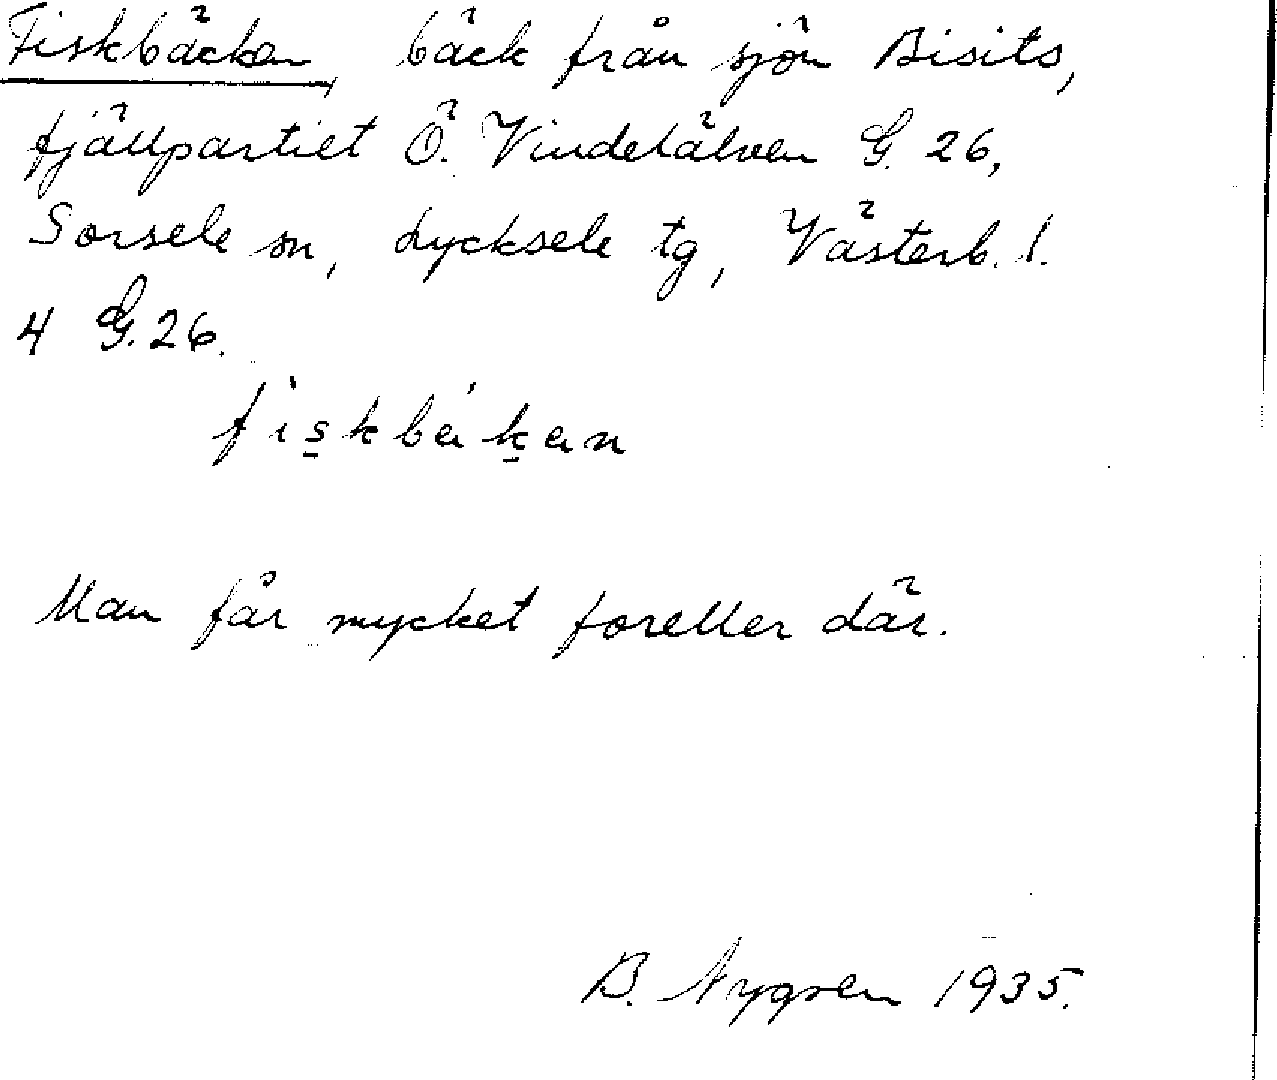 Fiskbäcken, bäck från sjön Bisits,
fjällpartiet Ö. Vindelälven G. 26,
Sorsele sn, Lycksele tg, Västerb. l.
4 G. 26.
fiskbäkan
Man får mycket foreller där.
B. Nygren 1935.